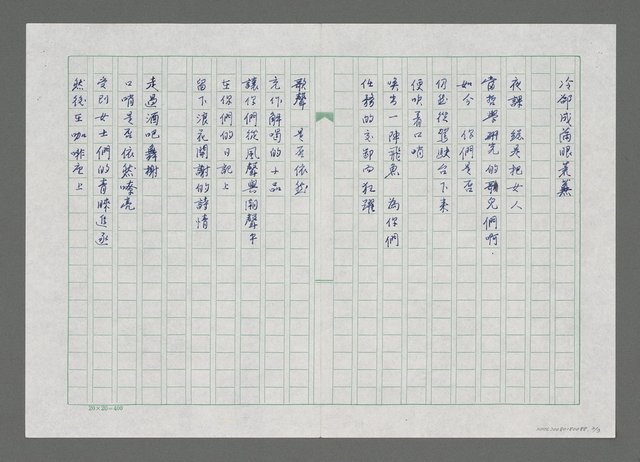 冷卻成滿眼荒蕪
夜課 總是把女人
當哲學研究的健兒們啊.
如今 你們是否
仍然從駕駛台下來
便吹着口哨
喚出一陣飛魚 為你們
任務的交卸而狂躍
歌聲 是否依然
充作解渴的小品
讓你們從風聲與潮聲中
在你們的日記上
留下浪花開謝的詩情
走過酒吧舞榭
口哨是否依然嘹亮
受到女士們的青睞
然後在咖啡座上
20×20=400